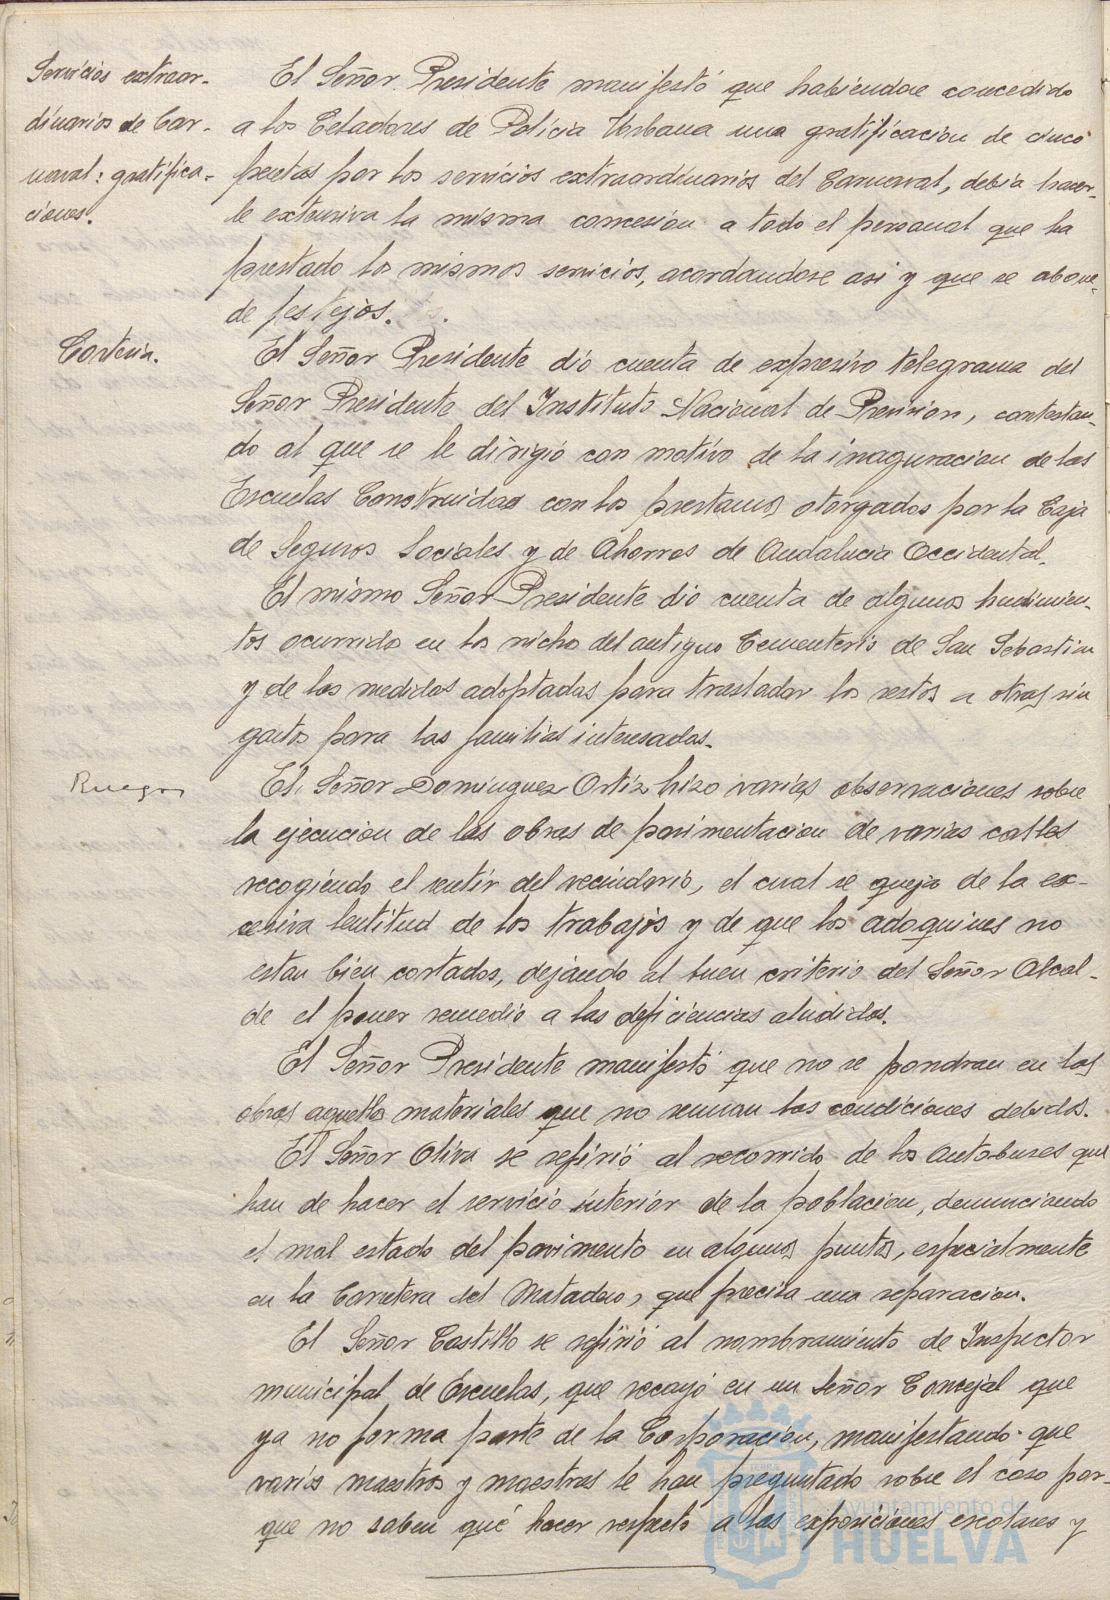 Servicios extraor-
dinarios de Car-
naval: gratifica-
ciones.
El Señor Presidente manifestó que habiendose concedido
a los Celadores de Policia Urbana una gratificacion de cinco
pesetas por los servicios extraordinarios del Carnaval, debia hacer-
le extensiva la misma concesión a todo el personal que ha
prestado los mismos servicios, acordandose asi y que se abone
de festejos.
Cortesia.
El Señor Presidente dió cuenta de expresivo telegrama del
Señor Presidente del Instituto Nacional de Prevision, contestan-
do al que se le dirigió con motivo de la inaguracion de las
Escuelas Construidas con los prestamos otorgados por la Caja
de Seguros Sociales y de Ahorros de Andalucia Occidental.
El mismo Señor Presidente dió cuenta de algunos hundimien-
tos ocurrido en los nicho del antiguo Cementerio de San Sebastian
y de las medidas adoptadas para trasladar los restos a otros sin
gastos para las familias interesadas.
Ruegos
El Señor Dominguez Ortiz hizo varias observaciones sobre
la ejecucion de las obras de pavimentacion de varias calles
recogiendo el sentir del vecindario, el cual se queja de la ex-
cesiva lentitud de los trabajos y de que los adoquines no
estan bien cortados, dejando al buen criterio del Señor Alcal-
de el poner remedio a las deficiencias aludidas.
El Señor Presidente manifestó que no se pondran en las
obras aquellos materiales que no reunan las condiciones debidas.
El Señor Oliva se refirió al recorrido de los Autobuses que
han de hacer el servicio interior de la poblacion, denunciando
el mal estado del pavimento en algunos puntos, especialmente
en la Carretera del Matadero, que precisa una reparacion.
El Señor Castillo se refirió al nombramiento de Inspector
municipal de Escuelas, que recayó en un Señor Concejal que
ya no forma parte de la Corporación, manifestando que
varios maestros y maestras le han preguntado sobre el caso por-
que no saben qué hacer respecto a las exposiciones escolares y
Ayuntamiento de
HUELVA